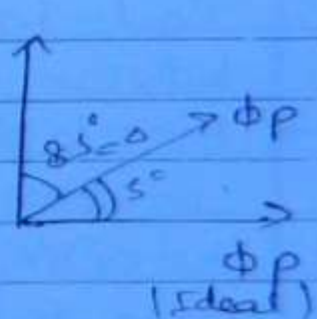 85°=Δ
ϕp
5°
ϕp
(Ideal)